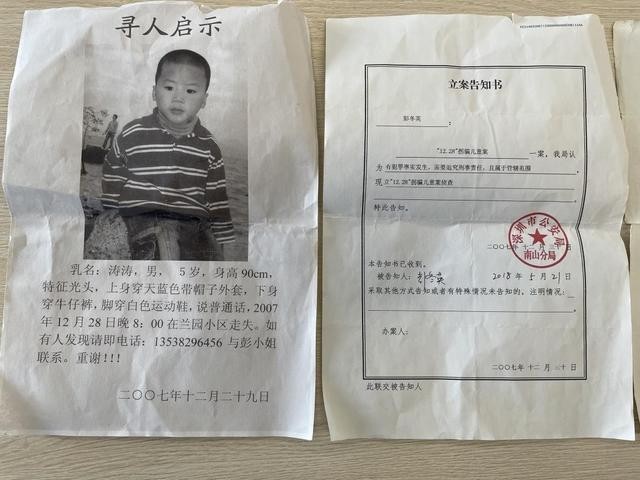 寻人启示
乳名：涛涛，男， 5岁，身高90cm，
特征光头，上身穿天蓝色带帽子外套，下身
穿牛仔裤，脚穿白色运动鞋，说普通话，2007
年12月28日晚8：00在兰园小区走失。如
有人发现请即电话：13538296456与彭小姐
联系。重谢!!!
二〇〇七年十二月二十九日
立案告知书
彭冬英 ：
"12.28"拐骗儿童案 一案，我局认
为 有犯罪事实发生，需要追究刑事责任，且属于管辖范围
现 立"12.28"拐骗儿童案侦查
特此告知。
深圳市公安局
南山分局
二〇〇七年十二月三十日
本告知书已收到。
被告知人：彭冬英 2018年5月21日
采取其他方式告知或者有特殊情况未告知的，注明情况：
办案人：
二〇〇七年 十二 月 三十 日
此联交被告知人